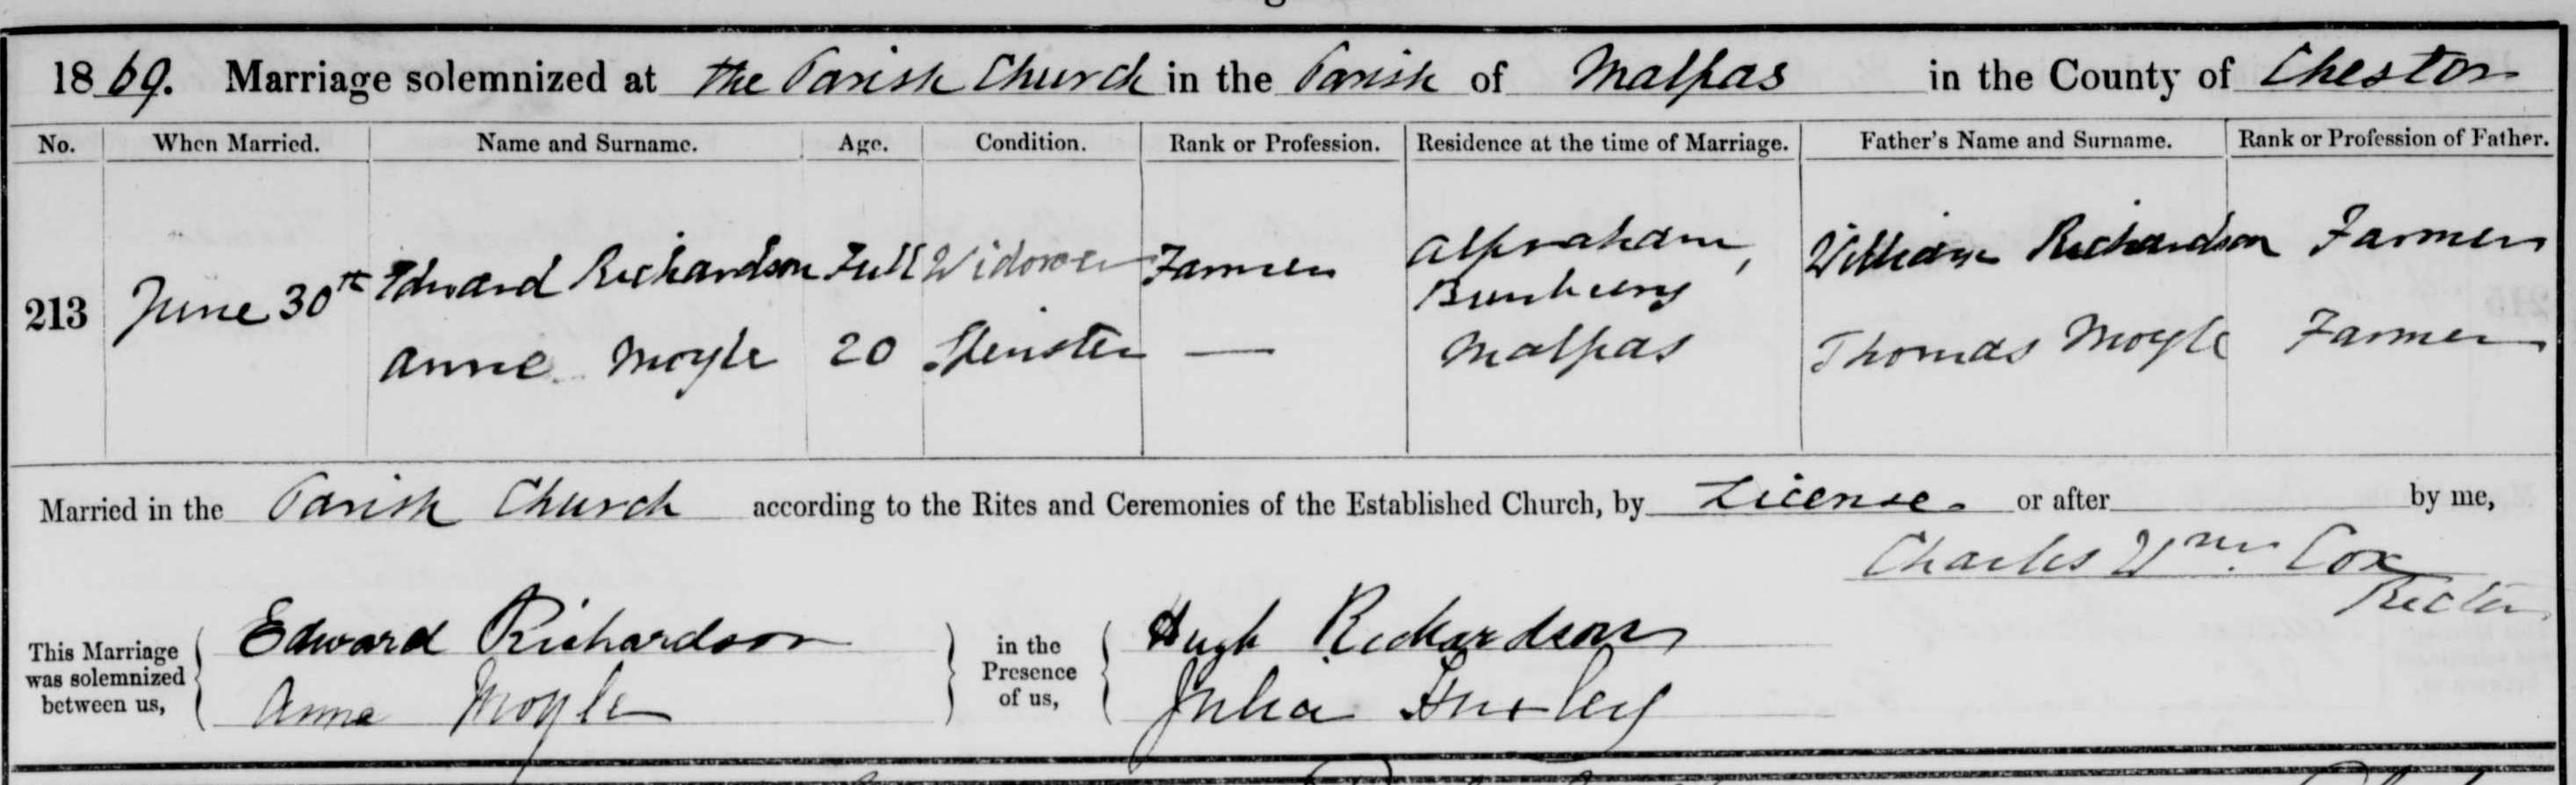 1869. Marriage solemnized at the Parish Church in the Parish of Malpas in the County of Chester
No. When Married. Name and Surname. Age. Condition. Rank or Profession. Residence at the time of Marriage. Father's Name and Surname. Rank or Profession of Father.
213 June 30th Edward Richardson Full Widower Farmer Alpraham, Bunbury William Richardson Farmer
Anne Moyle 20 Spinster — Malpas Thomas Moyle Farmer
Married in the Parish Church according to the Rites and Ceremonies of the Established Church, by License or after by me,
Charles Wm. Cox
Rector
This Marriage was solemnized between us, Edward Richardson in the Presence of us, Hugh Richardson
Anne Moyle Julia Huxley